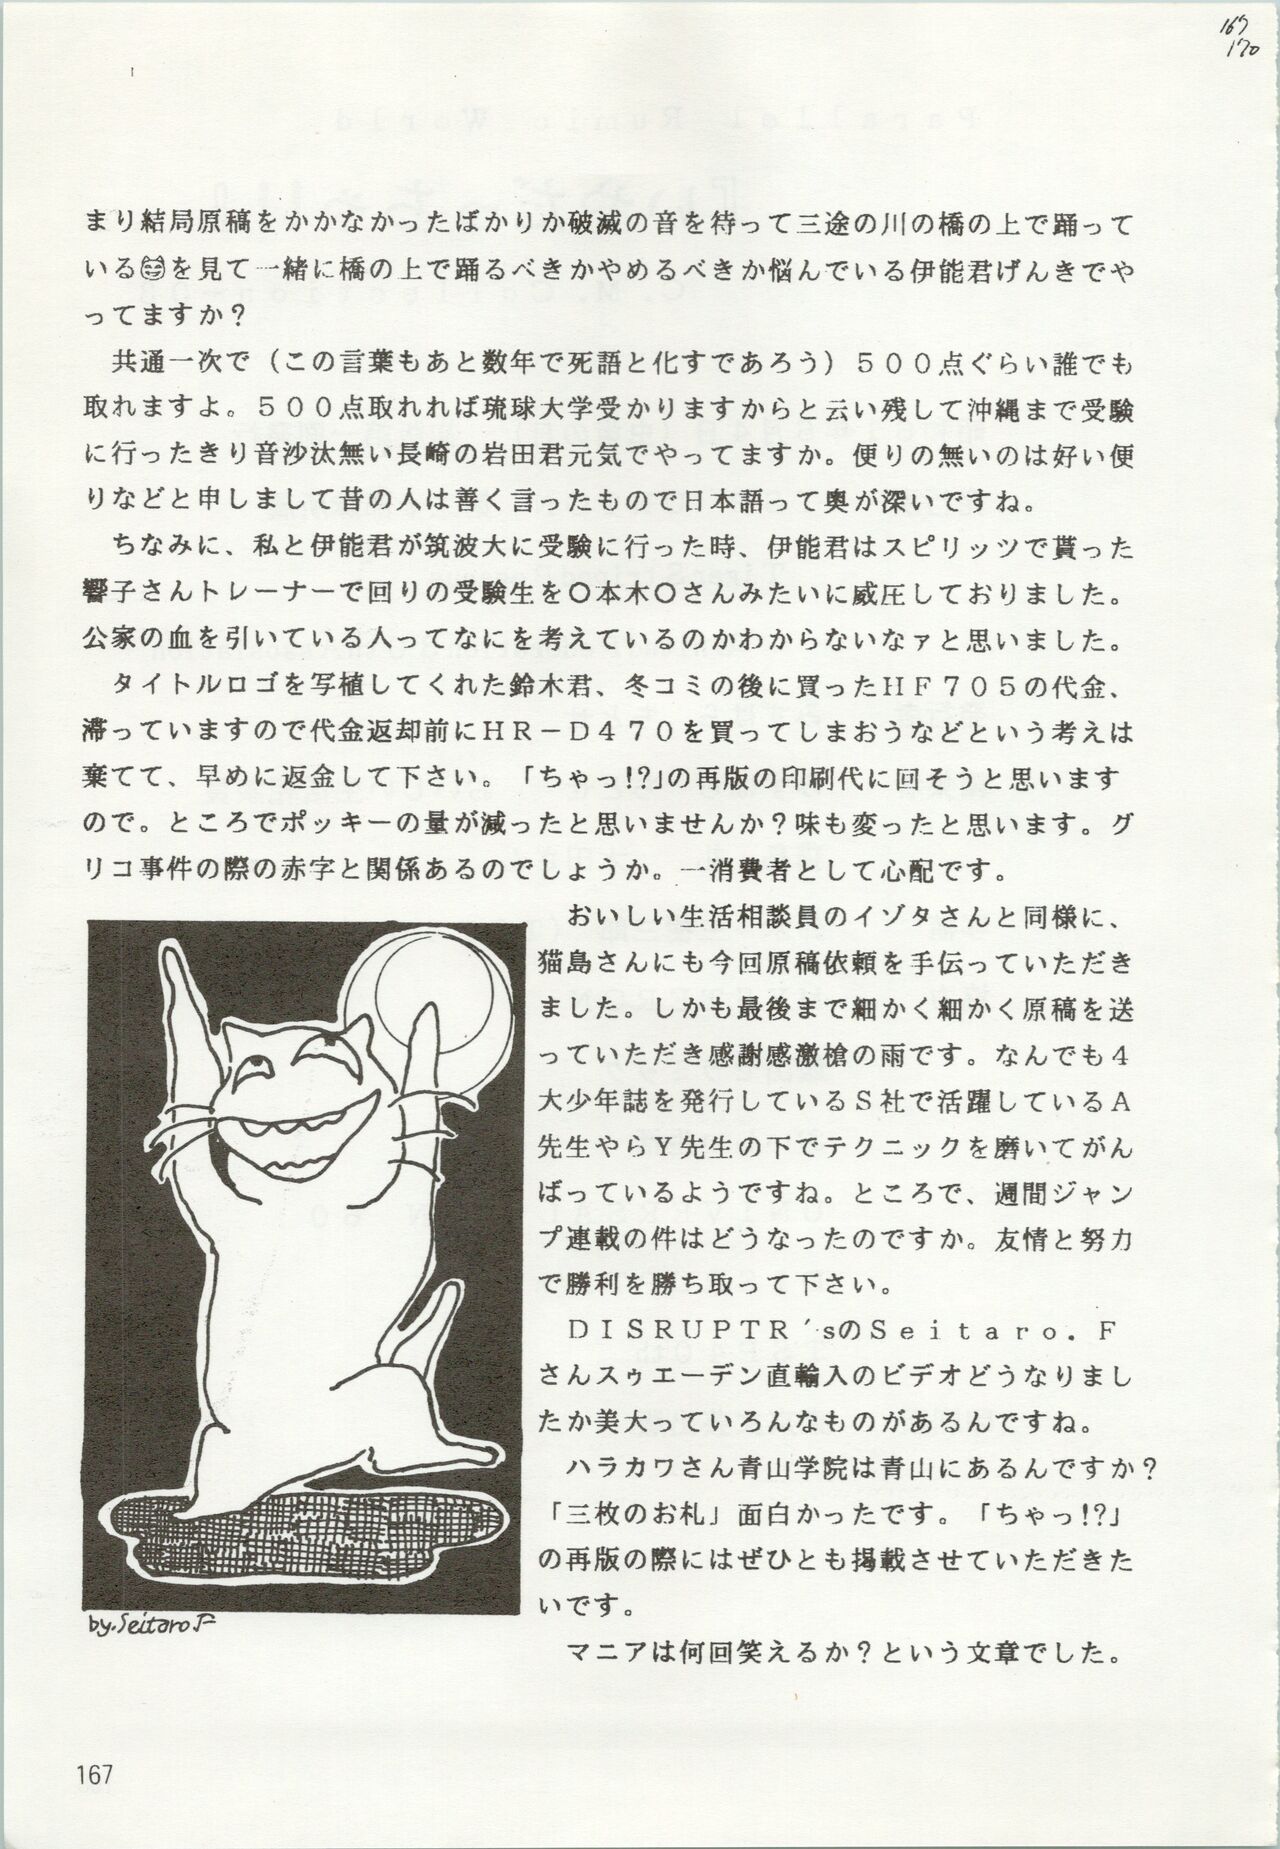 167
170
まり結局原稿をかかなかったばかりか破滅の音を待って三途の川の橋の上で踊って
いるを見て一緒に橋の上で踊るべきかやめるべきか悩んでいる伊能君げんきでや
ってますか？
共通一次で（この言葉もあと数年で死語と化すであろう）５００点ぐらい誰でも
取れますよ。５００点取れれば琉球大学受かりますからと云い残して沖縄まで受験
に行ったきり音沙汰無い長崎の岩田君元気でやってますか。便りの無いのは好い便
りなどと申しまして昔の人は善く言ったもので日本語って奥が深いですね。
ちなみに、私と伊能君が筑波大に受験に行った時、伊能君はスピリッツで貰った
響子さんトレーナーで回りの受験生を〇本木〇さんみたいに威圧しておりました。
公家の血を引いている人ってなにを考えているのかわからないなァと思いました。
タイトルロゴを写植してくれた鈴木君、冬コミの後に買ったＨＦ７０５の代金、
滞っていますので代金返却前にＨＲ－Ｄ４７０を買ってしまおうなどという考えは
棄てて、早めに返金して下さい。「ちゃっ!?」の再版の印刷代に回そうと思います
ので。ところでポッキーの量が減ったと思いませんか？味も変ったと思います。グ
リコ事件の際の赤字と関係あるのでしょうか。一消費者として心配です。
おいしい生活相談員のイゾタさんと同様に、
猫島さんにも今回原稿依頼を手伝っていただき
ました。しかも最後まで細かく細かく原稿を送
っていただき感謝感激槍の雨です。なんでも４
大少年誌を発行しているＳ社で活躍しているＡ
先生やらＹ先生の下でテクニックを磨いてがん
ばっているようですね。ところで、週間ジャン
プ連載の件はどうなったのですか。友情と努力
で勝利を勝ち取って下さい。
ＤＩＳＲＵＰＴＲ´sのＳｅｉｔａｒｏ．Ｆ
さんスゥエーデン直輸入のビデオどうなりまし
たか美大っていろんなものがあるんですね。
ハラカワさん青山学院は青山にあるんですか？
「三枚のお札」面白かったです。「ちゃっ!?」
の再版の際にはぜひとも掲載させていただきた
いです。
マニアは何回笑えるか？という文章でした。
by.Seitaro F
167